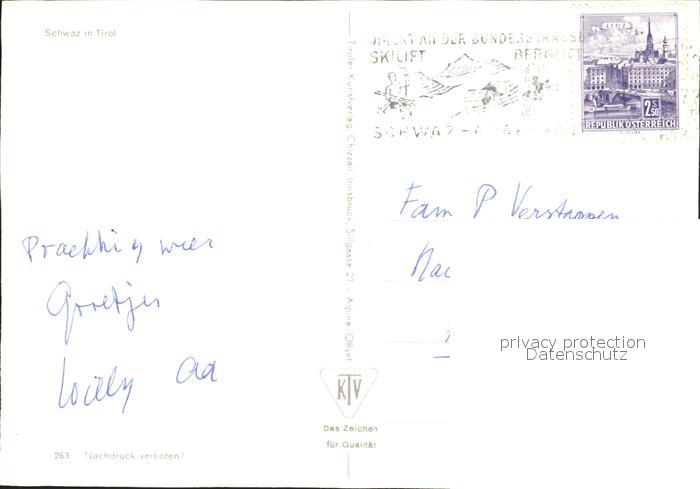 Schwaz in Tirol
DIREKT AN DER BUNDESSTRASSE
SKILIFT BERGLIFT
SCHWAZ -
LINZ
2 S 50
REPUBLIK ÖSTERREICH
Tiroler Kunstverlag Chizzali, Innsbruck, Sillgasse 21 - Alpina-Offset
Fam P Verstappen
Prachtig weer
Groetjes
Willy Ad
privacy protection
Datenschutz
KTV
Das Zeichen
für Qualität
263 Nachdruck verboten!